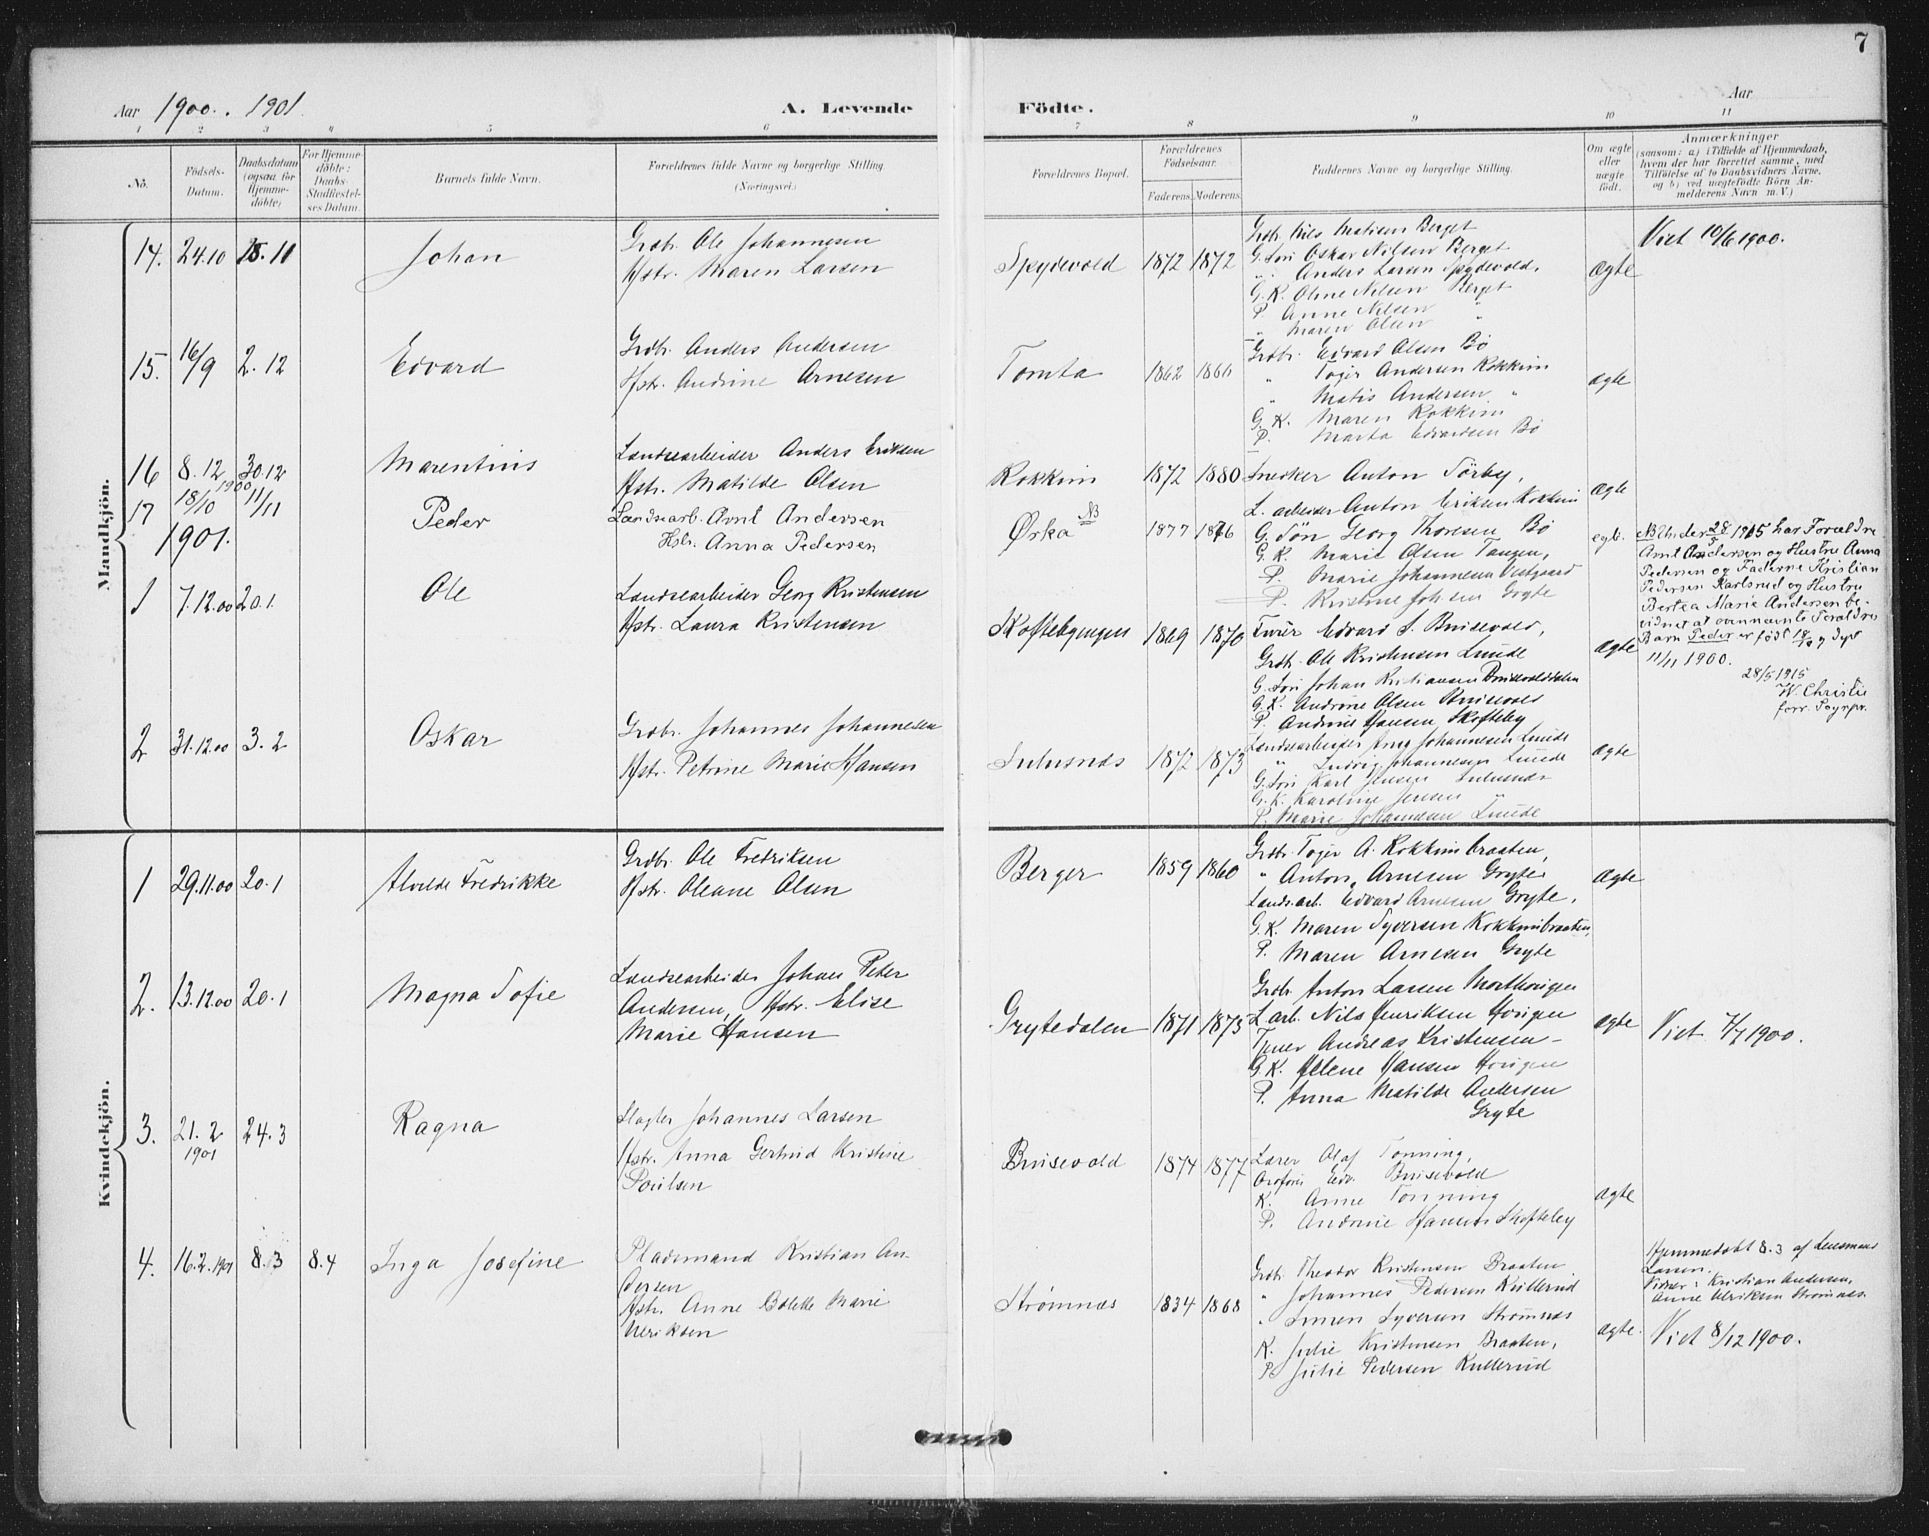 7
Aar 1900. 1901.
A. Levende Födte.
Aar
1 2 3 4 5 6 7 8 9 10 11
No.
Födsels-Datum.
Daabsdatum (ogsaa for Hjemmedöbte)
For Hjemmedöbte: Daabs-Stadfæstelses Datum.
Barnets fulde Navn.
Forældrenes fulde Navne og borgerlige Stilling.
(Næringsvei.)
Forældrenes Bopæl.
Forældrenes Födselsaar.
Faderens. Moderens.
Faddernes Navne og borgerlige Stilling.
Om ægte eller uægte födt.
Anmærkninger
(saasom: a) i Tilfælde af Hjemmedaab,
hvem der har forrettet samme, med
Tilföielse af to Daabsvidners Navne,
og b) ved uægtefödte Börn An-
melderens Navn m. V.)
Mandkjön.
14. 24.10 25.11 Johan
Grdbr. Ole Johannesen
Hstr. Maren Larsen
Spydevold 1872 1872
Grdbr. Nils Matisen Berget
G. Søn Oskar Nilsen Berget
" Anders Larsen Spydevold.
G. K. Oline Nilsen Berget
P. Anne Nilsen "
" Maren Olsen "
ægte
Viet 10/6 1900.
15. 16/9 2.12 Edvard
Grdbr. Anders Andersen
Hstr. Andrine Arnesen
Tomta 1862 1866
Grdbr. Edvard Olsen Bø
" Toger Andersen Kokkim
" Matis Andersen "
G. K. Maren Kokkim
P. Marta Edvardsen Bø
ægte
16 8.12 30.12 Marentius
Landsearbeider Anders Eriksen
Hstr. Matilde Olsen
Kokkim 1872 1880
Snedker Anton Tørby,
L. arbeider Anton Eriksen Kokkim
ægte
17 18/10 1900 11/11 Peder
Landsarb. Arnt Andersen
Hstr. Anna Pedersen
Ørka NB 1877 1876
G. Søn Georg Thoresen Bø
G. K. Marie Olsen Tangen,
P. Marie Johannesen Vestgaard
P. Kristine Johnsen Gryte
egte.
NB Under 28/5 1915 har Forældre
Arnt Andersen og Hustru Anna
Pedersen og Fadderne Kristian
Pedersen Karlsrud og Hustru
Bertea Marie Andersen be-
vidnet at ovennevnte Forældres
Barn Peder er født 18/10 og døpt
11/11 1900.
28/5 1915
W. Christie
forr. Sognpr.
1901.
1 7.12.00 20.1 Ole
Landsearbeider Georg Kristensen
Hstr. Laura Kristensen
Skoftebyengen 1869 1870
Furer Edvard S. Brusevold,
Grdbr. Ole Kristensen Lunde
G. Søn Johan Kristiansen Brusevolddalen
G. K. Andrine Olsen Brusevold
P. Andrine Hansen Skofteby
ægte
2 31.12.00 3.2 Oskar
Grdbr. Johannes Johannesen
Hstr. Petrine Marie Hansen
1872 1873
Landsearbeider Johannesen Lunde
" Ludvig Johannesen Lunde
G. Søn Karl Jensen
G. K. Karoline Jensen "
P. Marie Johannesen Lunde
ægte
Kvindekjön.
1 29.11.00 20.1 Alvilde Fredrikke
Grdbr. Ole Fredriksen
Hstr. Oleane Olsen
Berger 1859 1860
Grdbr. Toger A. Kokkimbraaten,
" Anton Arnesen Gryte
Landsarb. Edvard Arnesen Gryte,
G. K. Maren Syversen Kokkimbraaten,
P. Maren Arnesen Gryte
ægte
2. 13.12.00 20.1 Magna Sofie
Landsearbeider Johan Peder
Andersen, Hstr. Elise
Marie Hansen
Grytedalen 1871 1873
Grdbr. Anton Larsen
L. arb. Nils Henriksen Horigen
Andreas Kristensen -
G. K. Helene Hansen Horigen
P. Anna Matilde Andersen
Gryte
ægte
Viet 7/7 1900.
3. 21.2 1901 24.3 Ragna
Slagter Johannes Larsen
Hstr. Anna Gertrud Kristine
Poulsen
Brusevold 1874 1877
Lærer Olaf Tonning,
Edv. Brusevold
K. Anne Tonning
P. Andrine Hansen Skofteby
ægte
4. 16.2.1901 8.3 8.4 Inga Josefine
Pladsmand Kristian An-
dersen
Hstr. Anne Bolette Marie
Ulriksen
Strømnæs 1834 1868
Grdb. Theodor Kristensen Braaten
" Johannes Pedersen Kullerud
" Simen Syversen Strømnæs
K. Julie Kristensen Braaten,
P. Julie Pedersen Kullerud
ægte.
Hjemmedøbt 8.3 af Lensmand
Larsen.
Vidner: Kristian Andersen,
Anne Ulriksen Strømnæs.
Viet 8/12 1900.